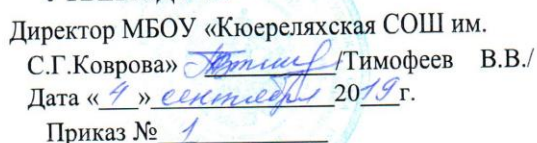 Директор МБОУ «Кюереляхская СОШ им.
С.Г.Коврова» /Тимофеев В.В./
Дата «4» сентября 2019г.
Приказ № 1